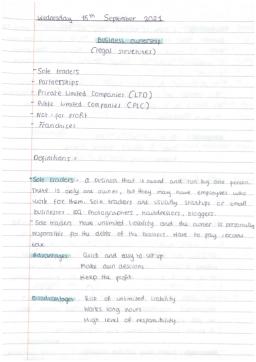 Wednesday 15th September 2021
Business ownership
(legal structures)
- Sole traders
- Partnerships
- Private Limited Companies (LTD)
- Public Limited Companies (PLC)
- Not-for profit
- Franchises
Definitions:
- Sole traders: a business that is owned and run by one person.
There is only one owner, but they may have employees who
work for them. Sole traders are usually startups or small
businesses. eg photographers, hairdressers, bloggers.
- Sole traders have unlimited liability and the owner is personally
responsible for the debts of the business. Have to pay
Advantages: Quick and easy to set up
Make own decisions
Keep the profit
Disadvantages: Risk of unlimited liability
Works long hours
High level of responsibility